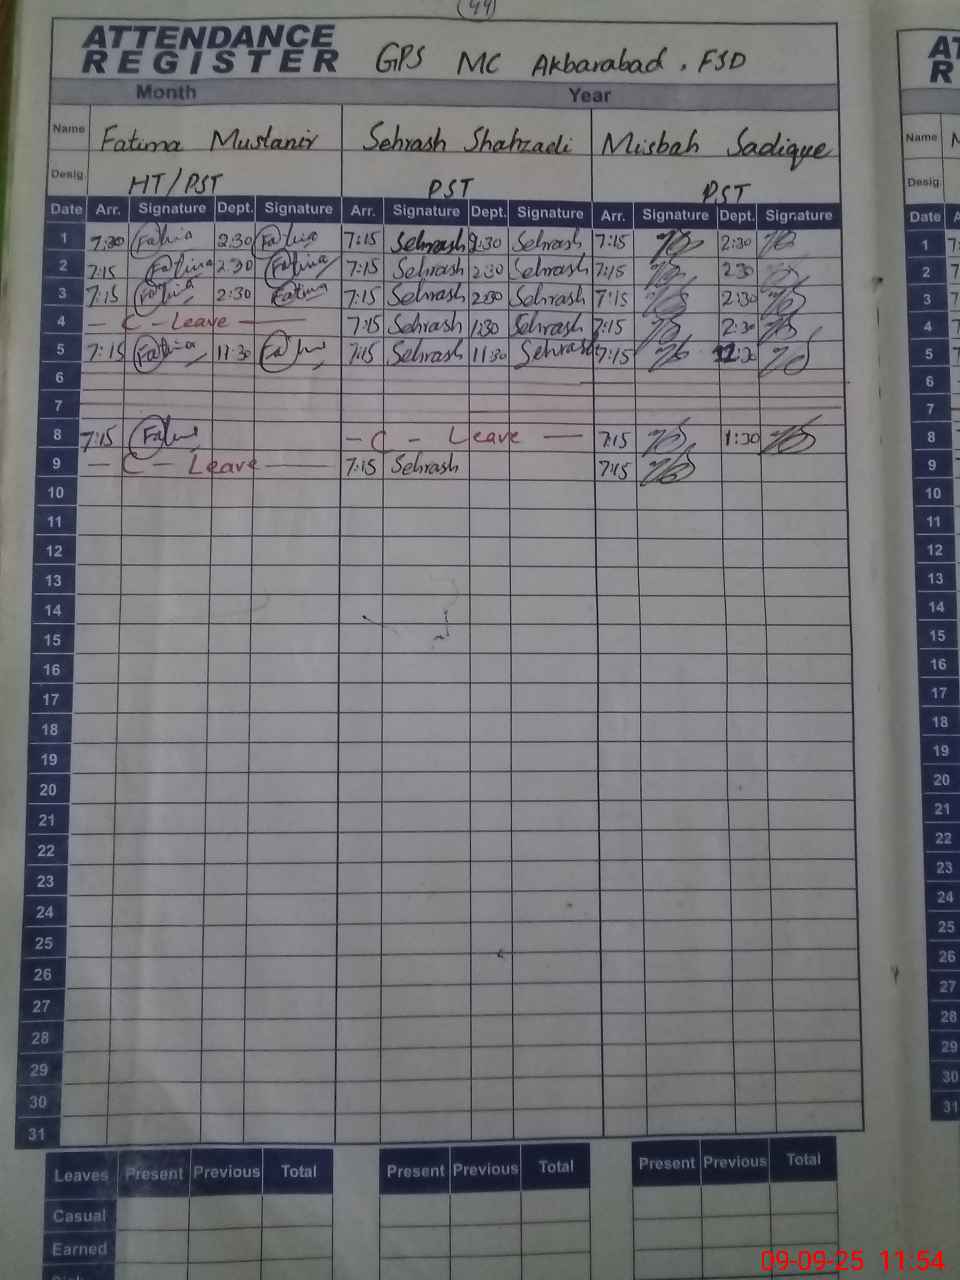 (44)
ATTENDANCE
REGISTER GPS MC Akbarabad, FSD
Month Year
Name Fatima Mustanir Sehrash Shahzadi Misbah Sadique
Desig. HT/PST PST PST
Date Arr. Signature Dept. Signature Arr. Signature Dept. Signature Arr. Signature Dept. Signature
1 7:30 Fatima 2:30 Fatima 7:15 Sehrash 2:30 Sehrash 7:15 2:30
2 7:15 Fatima 2:30 Fatima 7:15 Sehrash 2:30 Sehrash 7:15 2:30
3 7:15 Fatima 2:30 Fatima 7:15 Sehrash 2:30 Sehrash 7:15 2:30
4 - C - Leave - 7:15 Sehrash 1:30 Sehrash 7:15 2:30
5 7:15 Fatima 11:30 Fatima 7:15 Sehrash 11:30 Sehrash 7:15
6
7
8 7:15 Fatima - C - Leave - 7:15 1:30
9 - C - Leave - 7:15 Sehrash 7:15
10
11
12
13
14
15
16
17
18
19
20
21
22
23
24
25
26
27
28
29
30
31
Leaves Present Previous Total Present Previous Total Present Previous Total
Casual
Earned
AT
R
Name
Desig.
Date
1
2
3
4
5
6
7
8
9
10
11
12
13
14
15
16
17
18
19
20
21
22
23
24
25
26
27
28
29
30
31
09-09-25 11:54